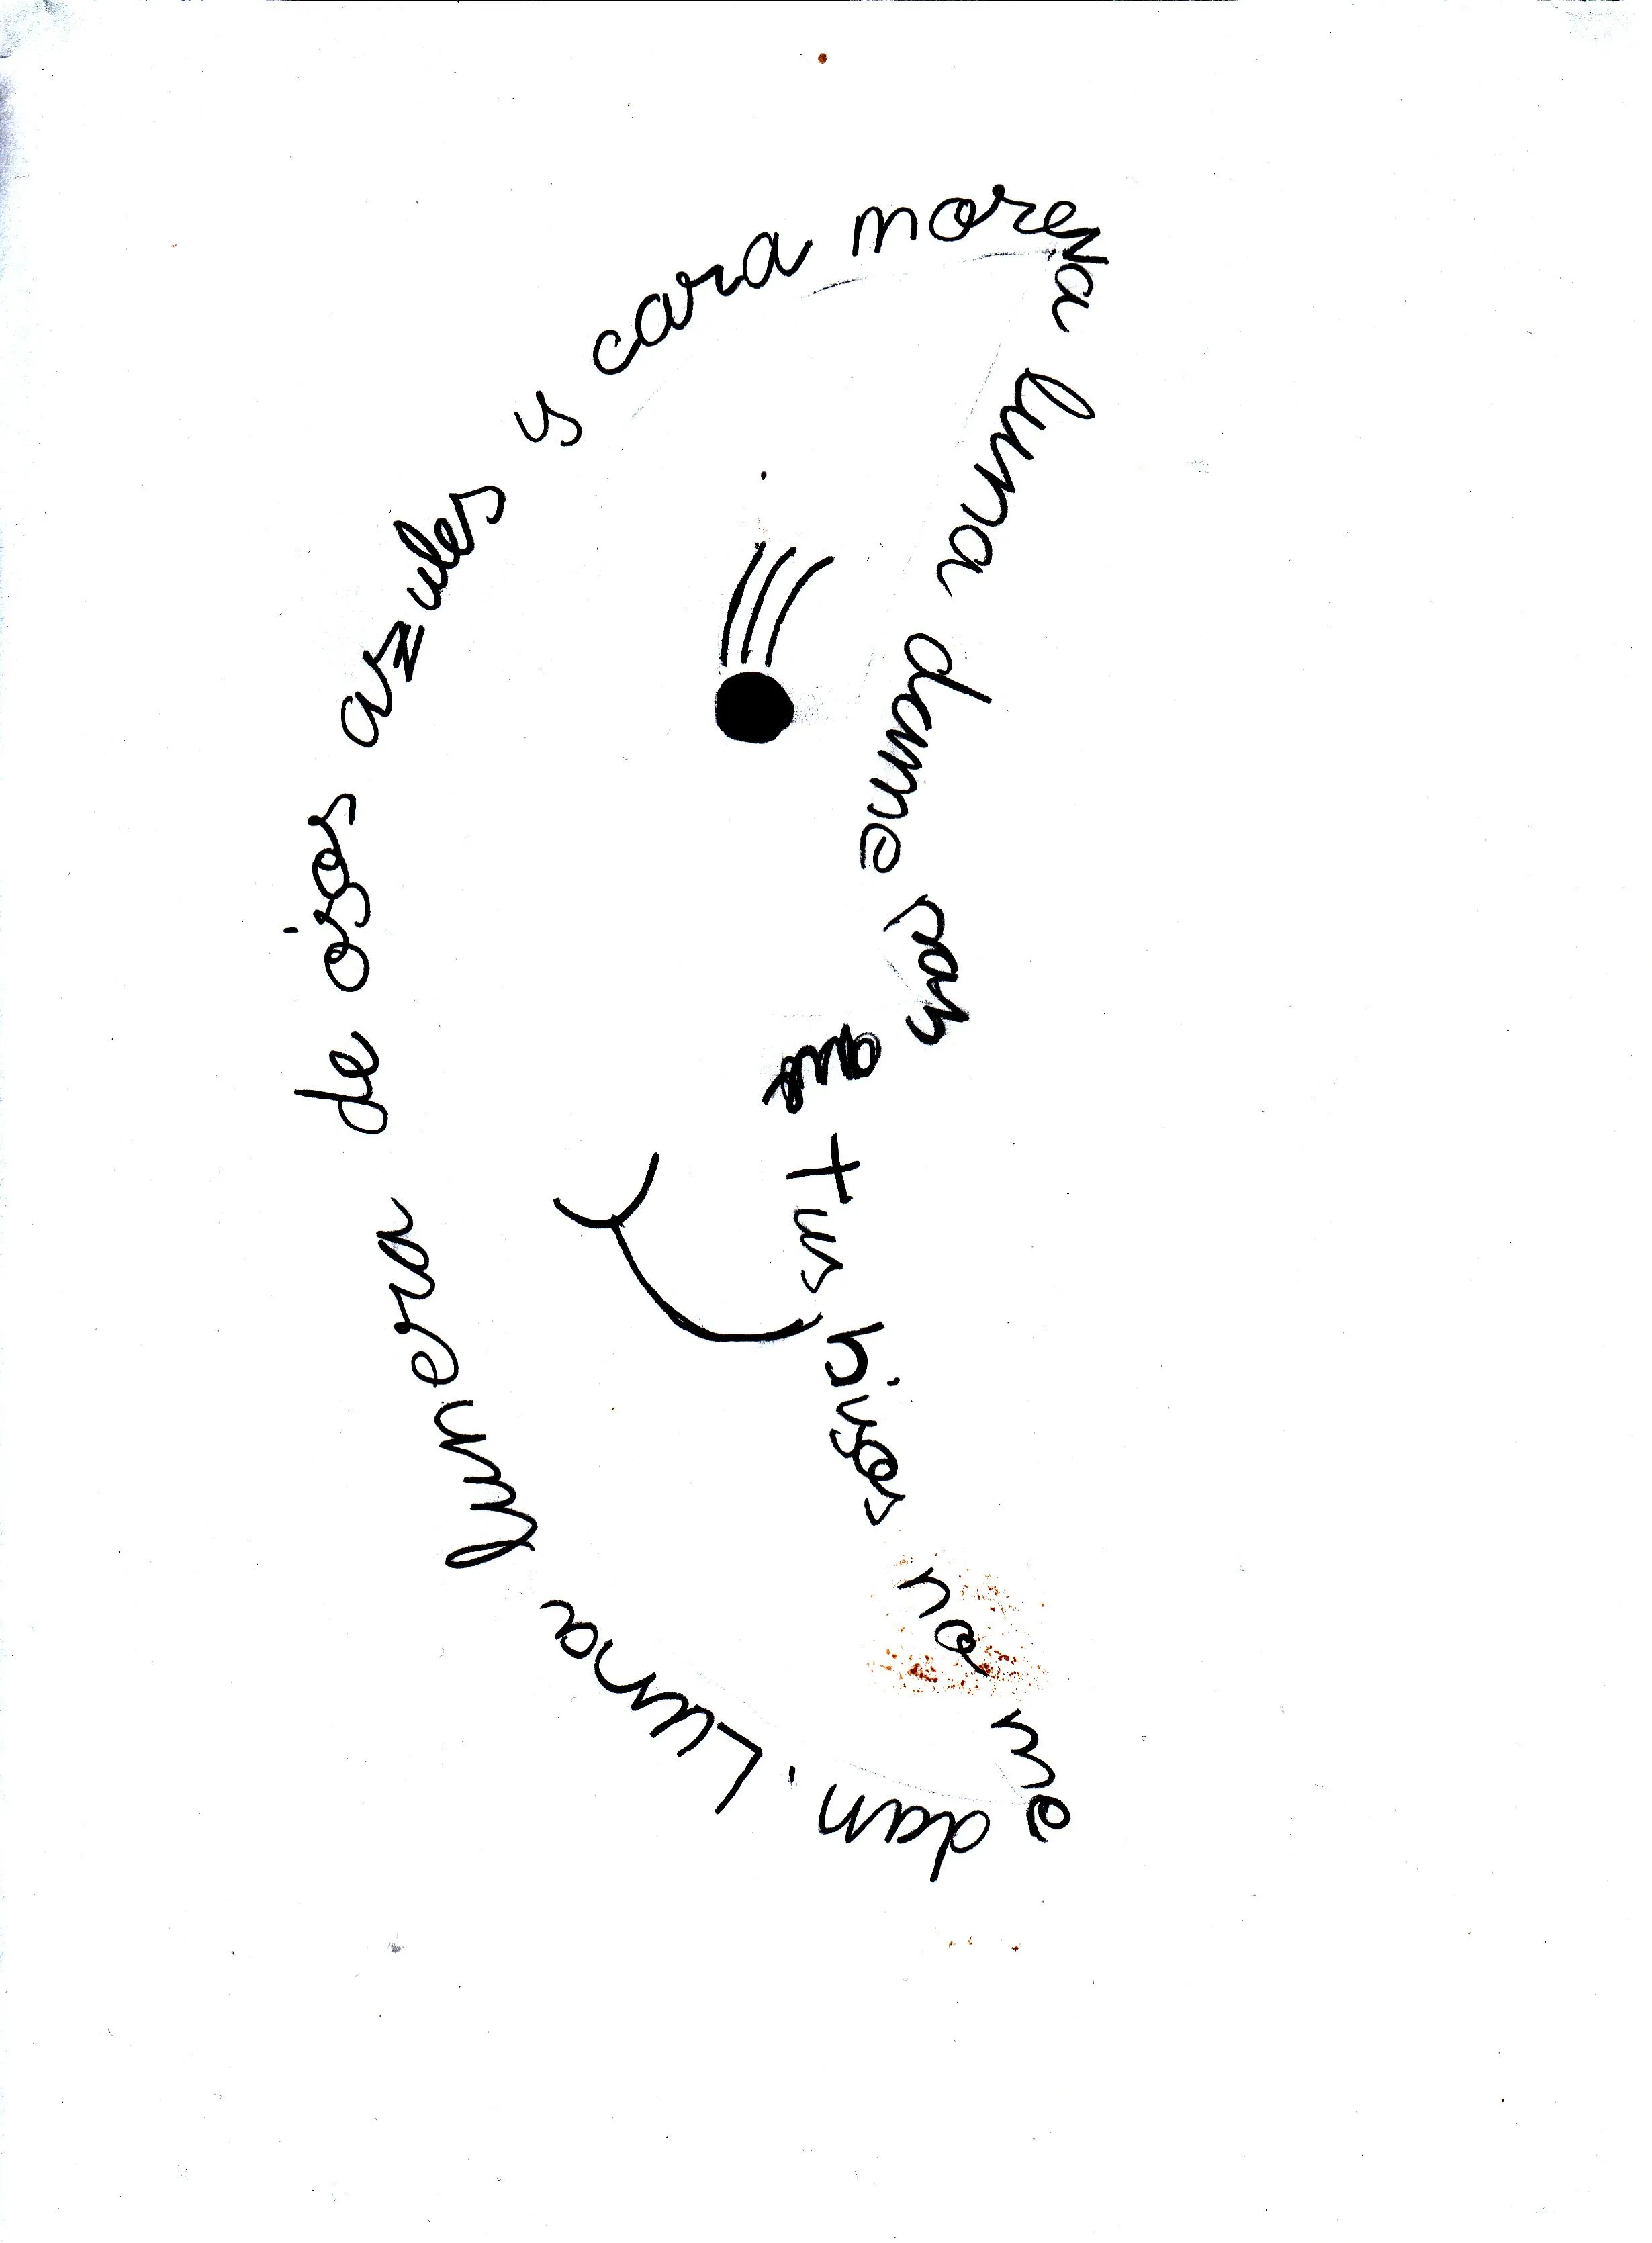 Luna lunera de ojos azules y cara morena luna dame que tus hijos no me dan.